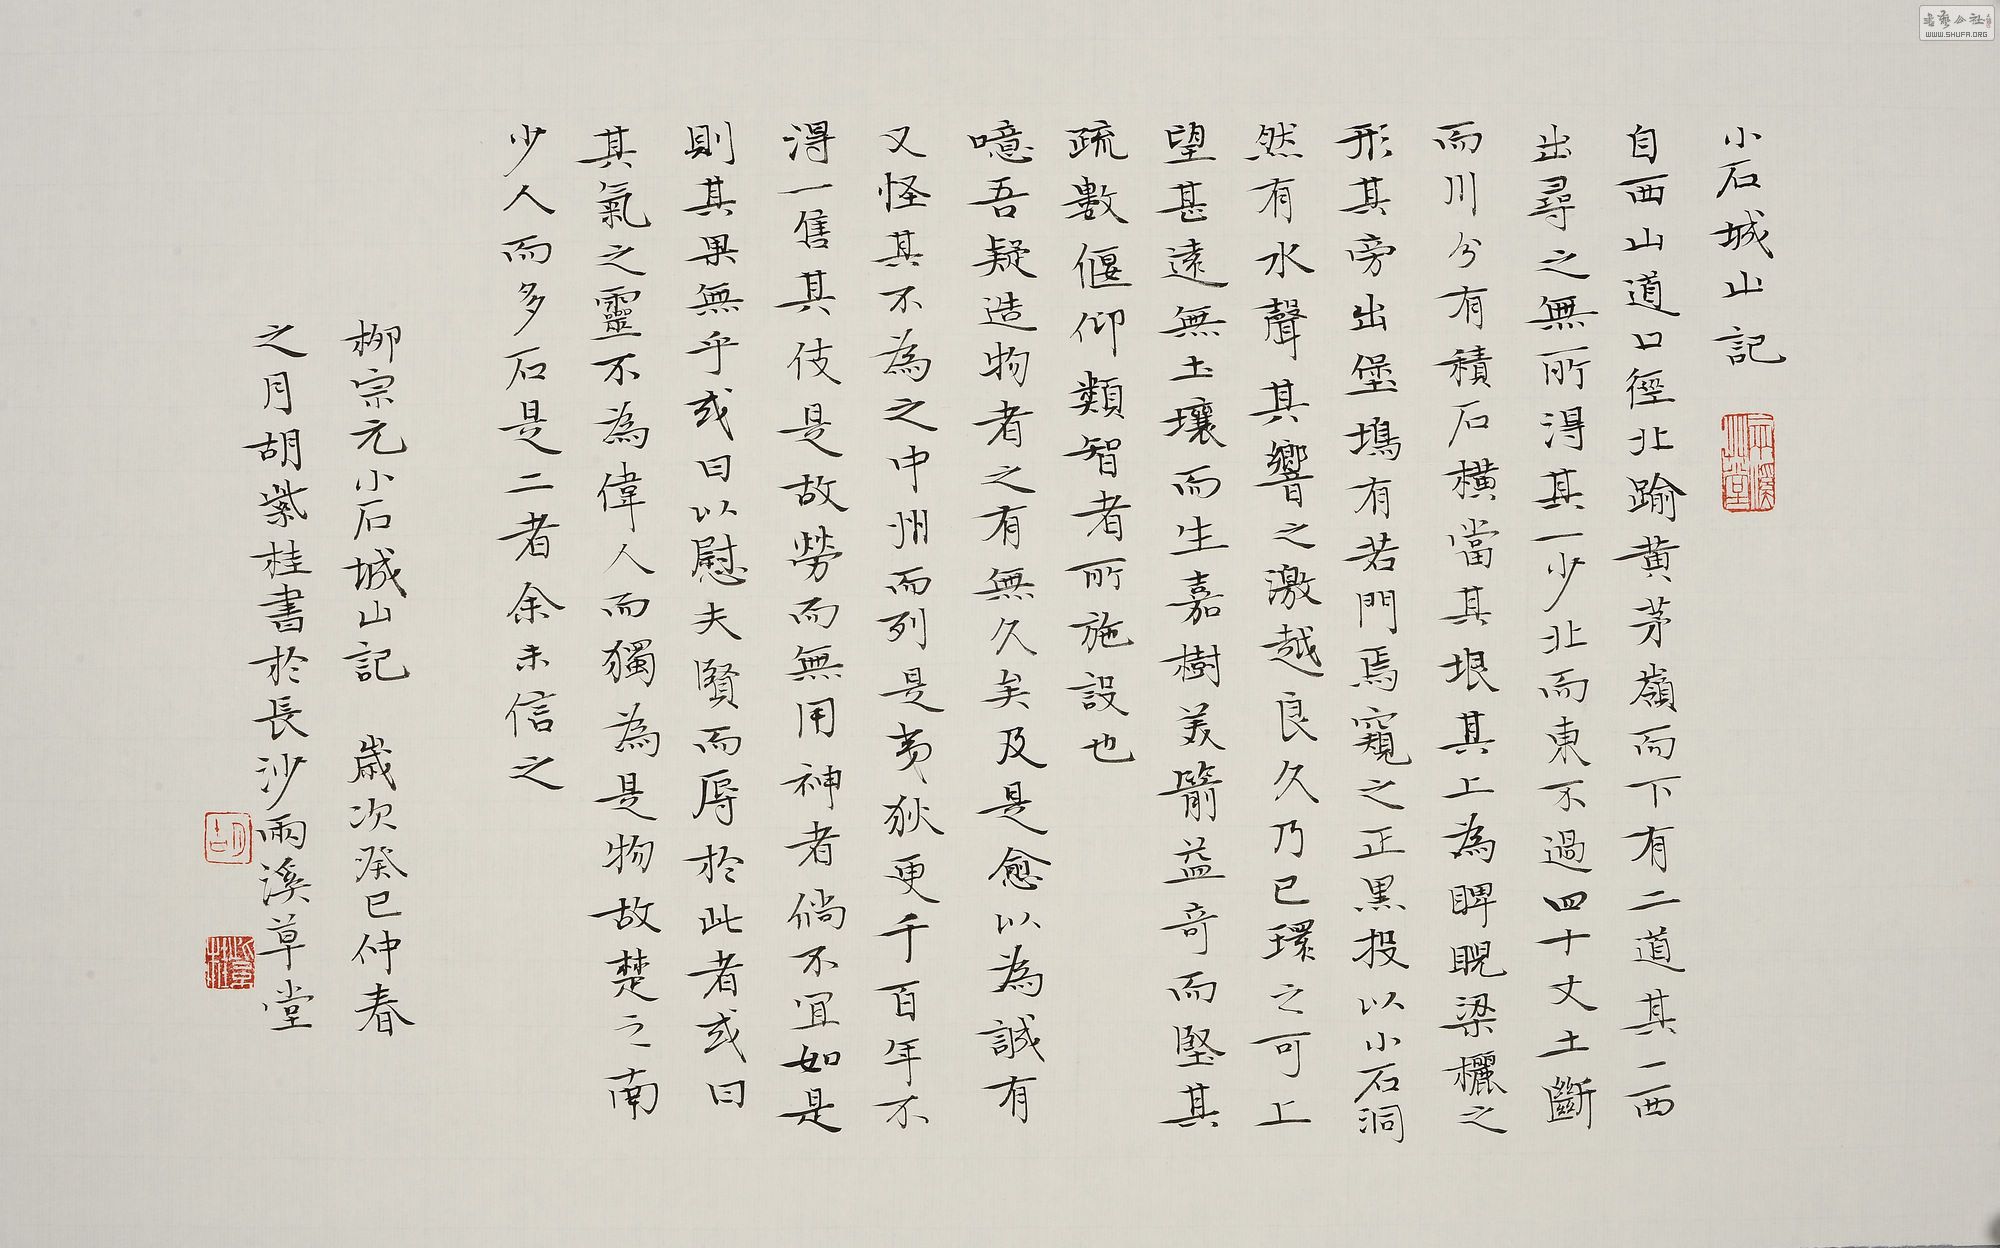 小石城山記
自西山道口徑北踰黄茅嶺而下有二道其一西
出尋之無所得其一少北而東不過四十丈土斷
而川分有積石橫當其垠其上為睥睨梁欐之
形其旁出堡塢有若門焉窺之正黒投以小石洞
然有水聲其響之激越良久乃已環之可上
望甚遠無土壤而生嘉樹美箭益奇而堅其
疏數偃仰類智者所施設也
噫吾疑造物者之有無久矣及是愈以為誠有
又怪其不為之中州而列是夷狄更千百年不
得一售其伎是故勞而無用神者倘不宜如是
則其果無乎或曰以慰夫賢而辱於此者或曰
其氣之靈不為偉人而獨為是物故楚之南
少人而多石是二者余未信之
柳宗元小石城山記 歲次癸巳仲春
之月胡紫桂書於長沙兩溪草堂
胡
書藝公社
WWW.SHUFA.ORG